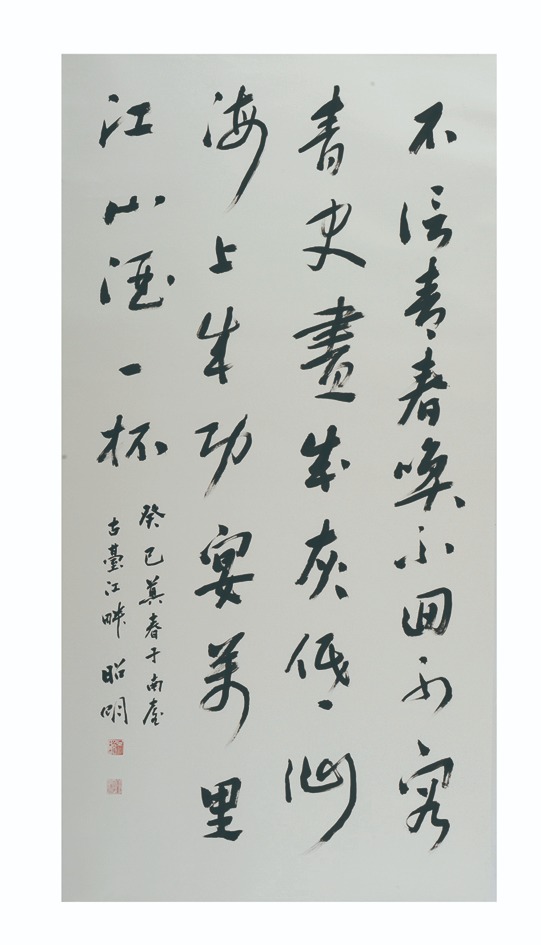 不信青春喚不回不容
青史盡成灰低徊
海上成功宴萬里
江山酒一杯
癸巳莫春于南臺
古臺江畔 昭明